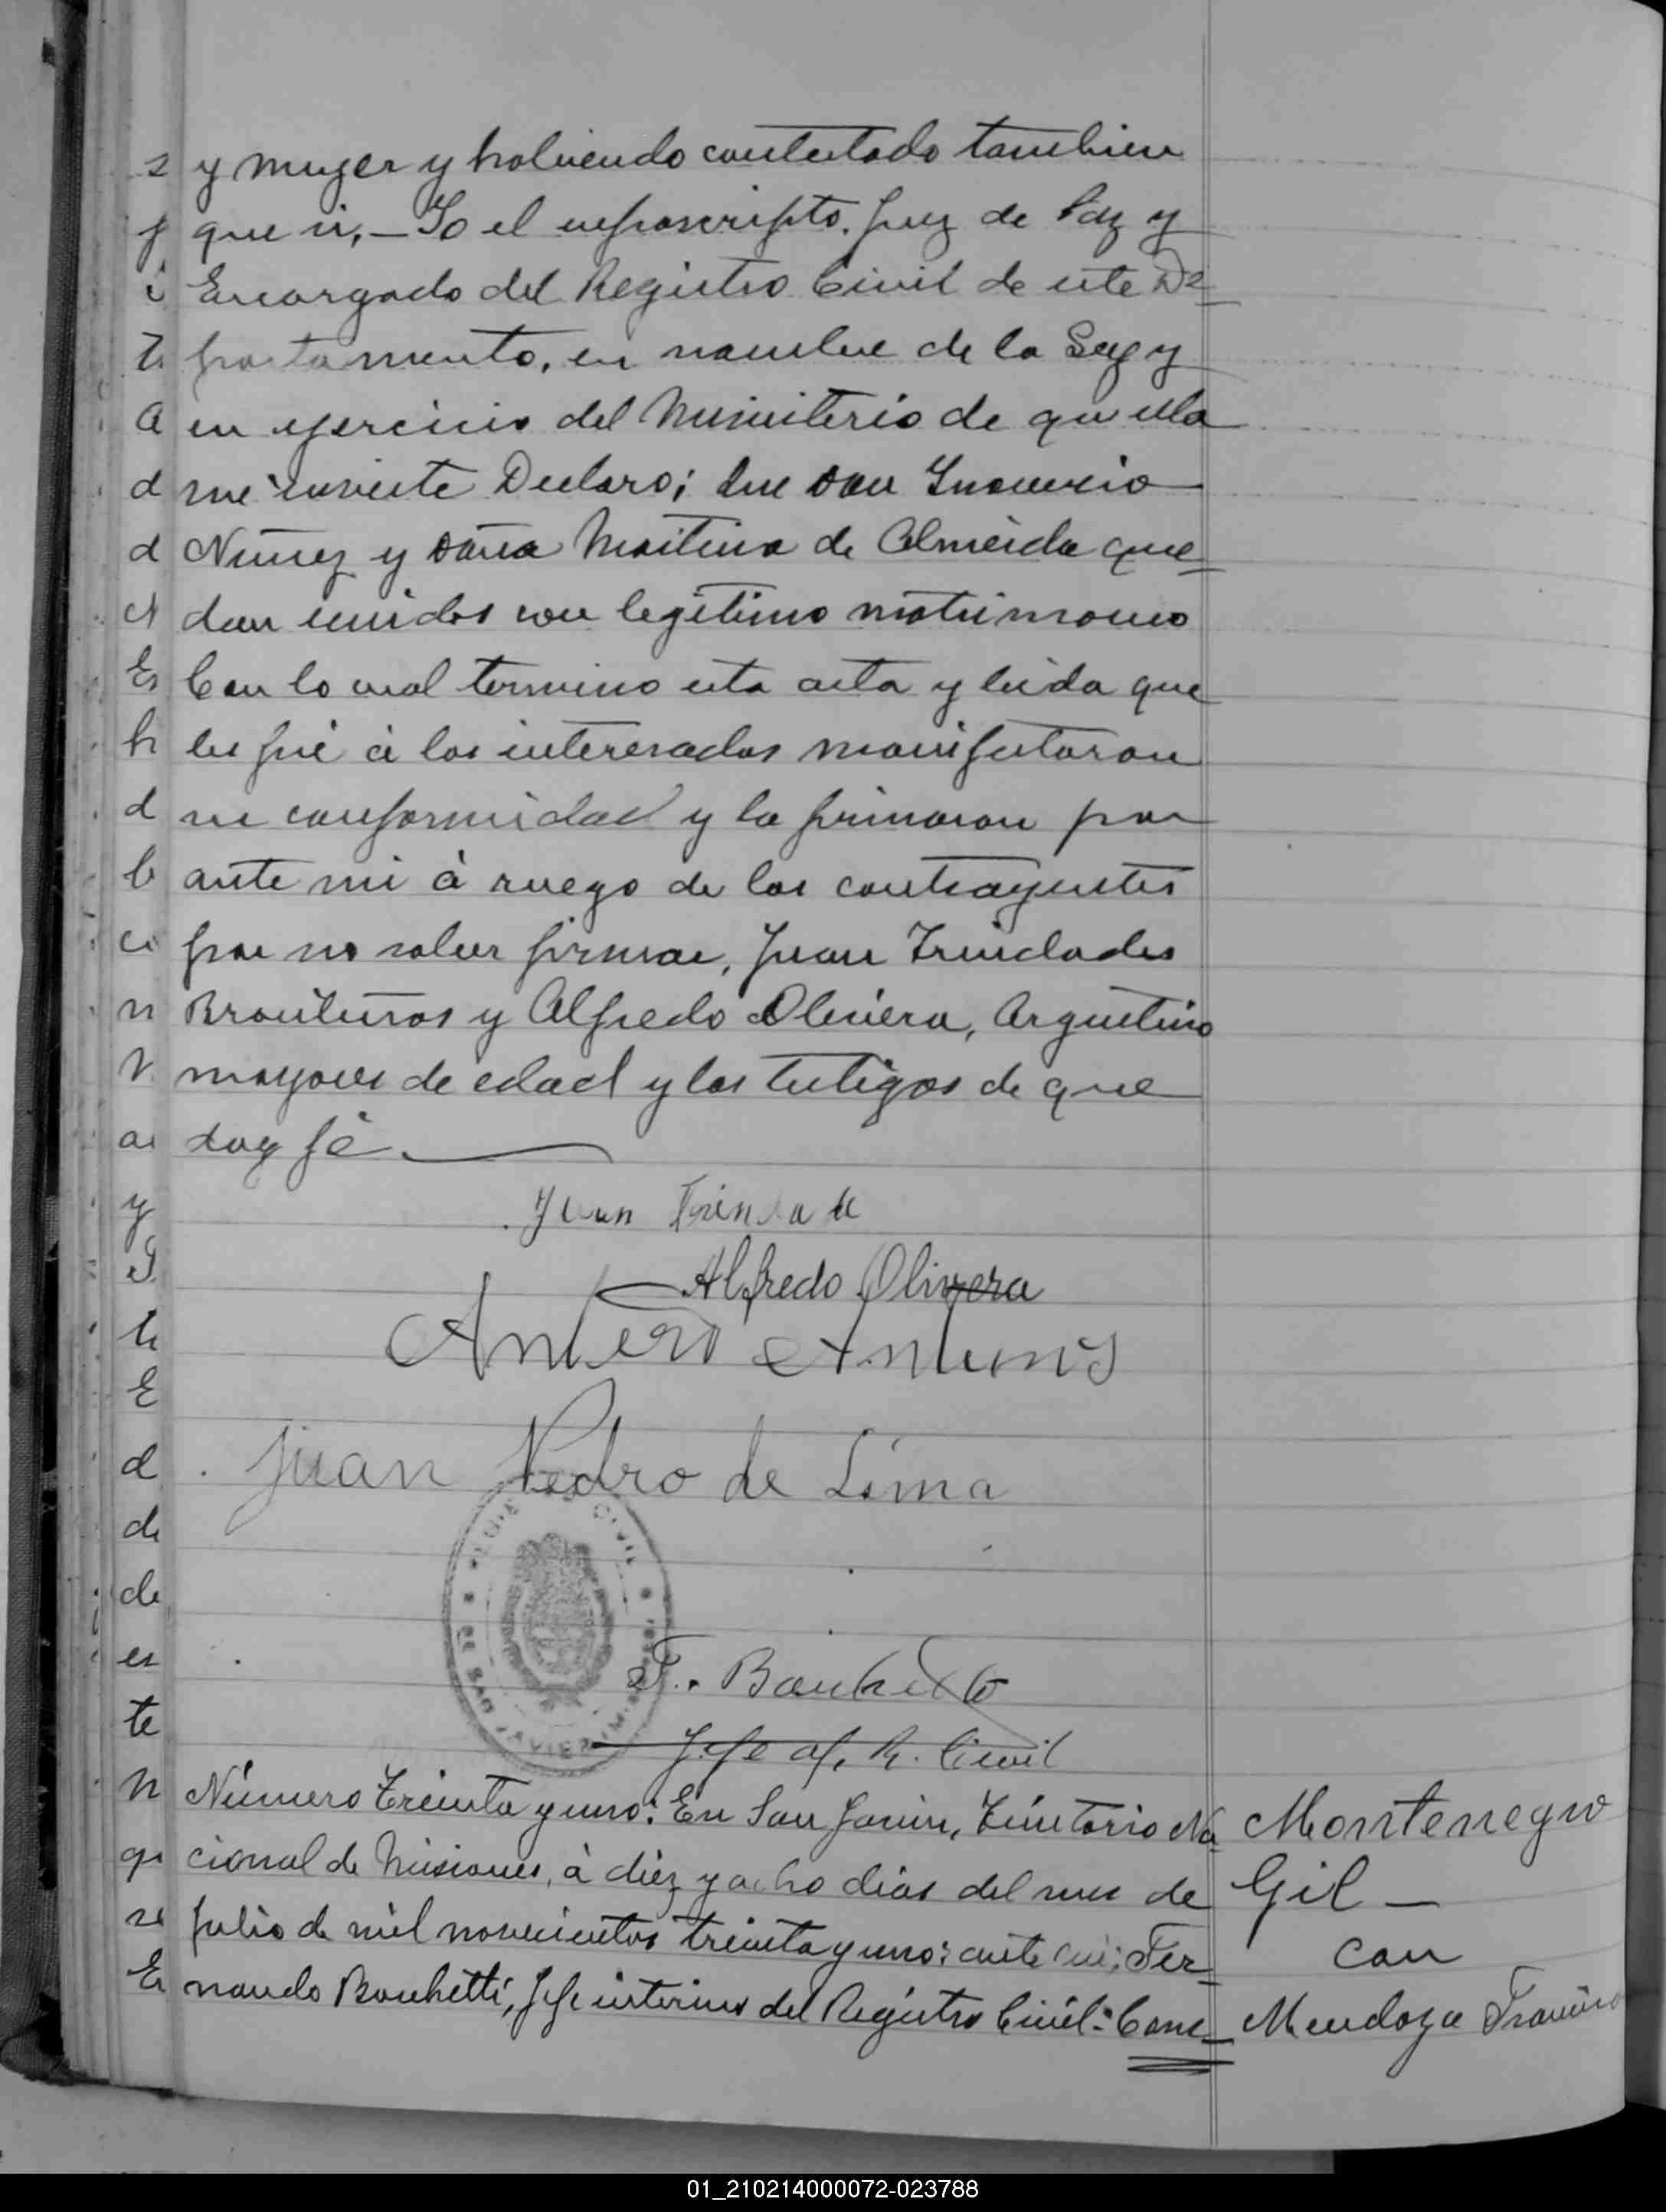 y muger y habiendo contestado tambien
que si, — Yo el infrascripto. Juez de Paz y
Encargado del Registro Civil de este De=
partamento, en nombre de la Ley y
en ejercicio del Ministerio de que ella
me inviste Declaro; Que don Inocencio
Nuñez y doña Martina de Almeida que=
dan unidos con legítimo matrimonio
Con lo cual termino esta acta y leida que
les fué á los interesados manifestaron
su conformidad y la firmaron por
ante mi á ruego de los contrayentes
por no saber firmar, Juan Trindades
Brasileros y Alfredo Olivera, Argentino
mayores de edad y los testigos de que
doy fé
Juan Trindade
Alfredo Olivera
Antero Antunes
Juan Pedro de Lima
CIVIL
DE SAN JAVIER
F. Bonchetti
Jefe of. R. Civil
Número Treinta y uno: En San Javier, Territorio Na
cional de Misiones, á diez y ocho dias del mes de
Julio de mil novecientos treinta y uno: ante mi; Fer=
nando Bonchetti, Jefe interino del Registro Civil: Com=
Montenegro
Gil —
con
Mendoza